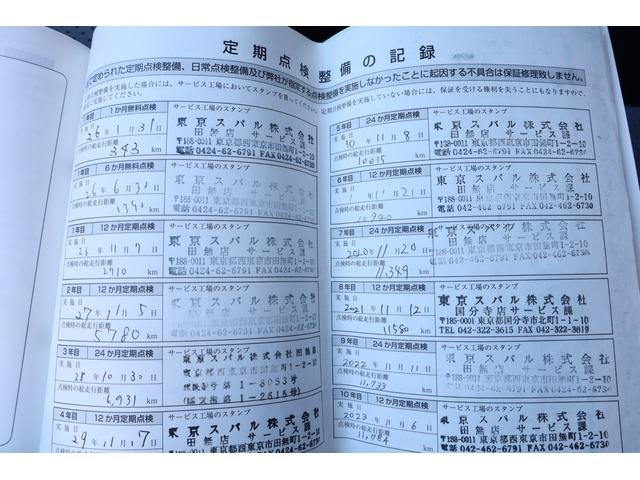 定期点検整備の記録
に定められた定期点検整備、日常点検整備及び弊社が指定する点検整備を実施しなかったことに起因する不具合は保証修理致しません。
整備を実施した場合には、サービス工場においてスタンプを貰ってください。
定期点検整備を実施していない場合には、保証を受ける権利を失うこともになりますので、
1か月無料点検
サービス工場のスタンプ
実施日
26年1月31日
点検時の総走行距離
343km
東京スバル株式会社
田無店 サービス課
〒188-0011 東京都西東京市田無町1-2-10
電話 0424-62-6791 FAX 0424-62-6730
1年目 6か月無料点検
サービス工場のスタンプ
実施日
26年6月30日
点検時の総走行距離
1340km
東京スバル株式会社
田無店 サービス課
〒188-0011 東京都西東京市田無町1-2-10
電話 0424-62-6791 FAX 0424-62-6730
1年目 12か月定期点検
サービス工場のスタンプ
実施日
年11月7日
点検時の総走行距離
2710km
東京スバル株式会社
田無店 サービス課
〒188-0011 東京都西東京市田無町1-2-10
電話 0424-62-6791 FAX 0424-62-6730
2年目 12か月定期点検
サービス工場のスタンプ
実施日
27年11月5日
点検時の総走行距離
5780km
東京スバル株式会社
田無店 サービス課
〒188-0011 東京都西東京市田無町1-2-10
電話 0424-62-6791 FAX 0424-62-6730
3年目 24か月定期点検
サービス工場のスタンプ
実施日
28年10月30日
点検時の総走行距離
6,931km
東京スバル株式会社田無店
第1-8053号
1-2615号
4年目 12か月定期点検
サービス工場のスタンプ
実施日
29年11月17日
東京スバル株式会社
田無店 サービス課
〒188-0011 東京都西東京市田無町1-2-10
電話 0424-62-6791 FAX 0424-62-6730
5年目 24か月定期点検
サービス工場のスタンプ
実施日
30年11月8日
点検時の総走行距離
10015km
東京スバル株式会社
田無店 サービス課
〒188-0011 東京都西東京市田無町1-2-10
電話 042-462-6791 FAX 042-462-6730
6年目 12か月定期点検
サービス工場のスタンプ
実施日
年11月21日
点検時の総走行距離
km
東京スバル株式会社
田無店 サービス課
〒188-0011 東京都西東京市田無町1-2-10
電話 042-462-6791 FAX 042-462-6730
7年目 24か月定期点検
サービス工場のスタンプ
実施日
2020年11月20日
点検時の総走行距離
11,349km
東京スバル株式会社
田無店 サービス課
〒188-0011 東京都西東京市田無町1-2-10
電話 042-462-6791 FAX 042-462-6730
8年目 12か月定期点検
サービス工場のスタンプ
実施日
2021年11月12日
点検時の総走行距離
11580km
東京スバル株式会社
国分寺店サービス課
〒185-0011 東京都国分寺市北町
TEL 042-322-3615 FAX 042-322-3619
9年目 24か月定期点検
サービス工場のスタンプ
実施日
2022年11月11日
点検時の総走行距離
11,733km
東京スバル株式会社
田無店 サービス課
〒188-0011 東京都西東京市田無町1-2-10
電話 042-462-6791 FAX 042-462-6730
10年目 12か月定期点検
サービス工場のスタンプ
実施日
2023年11月6日
点検時の総走行距離
11,784km
東京スバル株式会社
田無店 サービス課
〒188-0011 東京都西東京市田無町1-2-10
電話 042-462-6791 FAX 042-462-6730